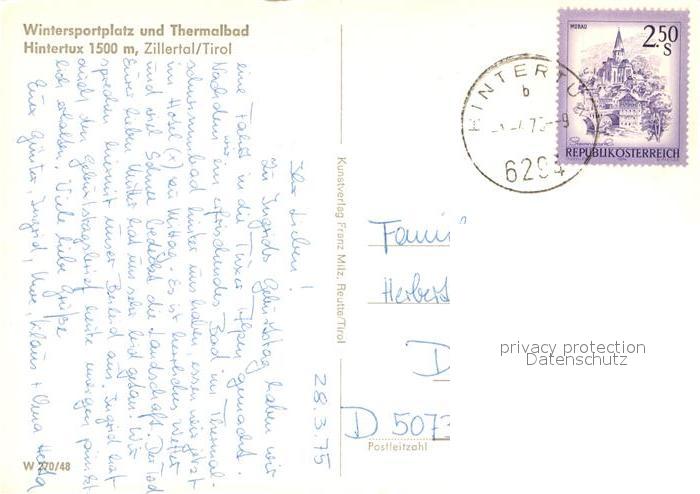 Wintersportplatz und Thermalbad
Hintertux 1500 m, Zillertal/Tirol
28.3.75
Ihr Lieben!
Zu Ingrids Geburtstag haben wir
eine Fahrt in die Tuxer Alpen gemacht.
Nachdem wir ein erfrischendes Bad im Thermal-
schwimmbad hinter uns haben, essen wir jetzt
im Hotel (x) zu Mittag. Es ist herrliches Wetter
und viel Schnee bedeckt die Landschaft. Der Tod
Eurer lieben Mutter hat uns sehr leid getan. Wir
sprechen hiermit unser Beileid aus. Ingrid hat
auch den Geburtstagsbrief heute morgen pünkt-
lich erhalten. Viele liebe Grüße
Eure Günter, Ingrid, Uwe, Klaus +
W 270/48
Kunstverlag Franz Milz, Reutte/Tirol
MURAU
2.50
S
REPUBLIK ÖSTERREICH
HINTERTU
b
-9
6294
Fami
Herbert
D
D 5073
Postleitzahl
privacy protection
Datenschutz